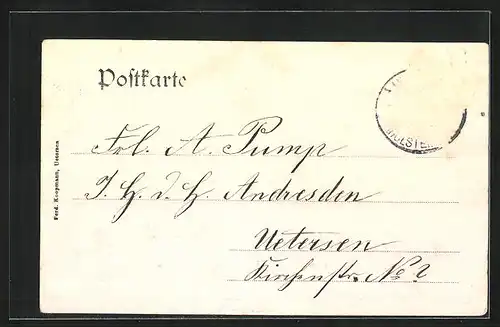 Postkarte
Frl. A. Pump
J. H. d. H. Andresden
Uetersen
Kirchenstr. No 2
Ferd. Koopmann, Uetersen